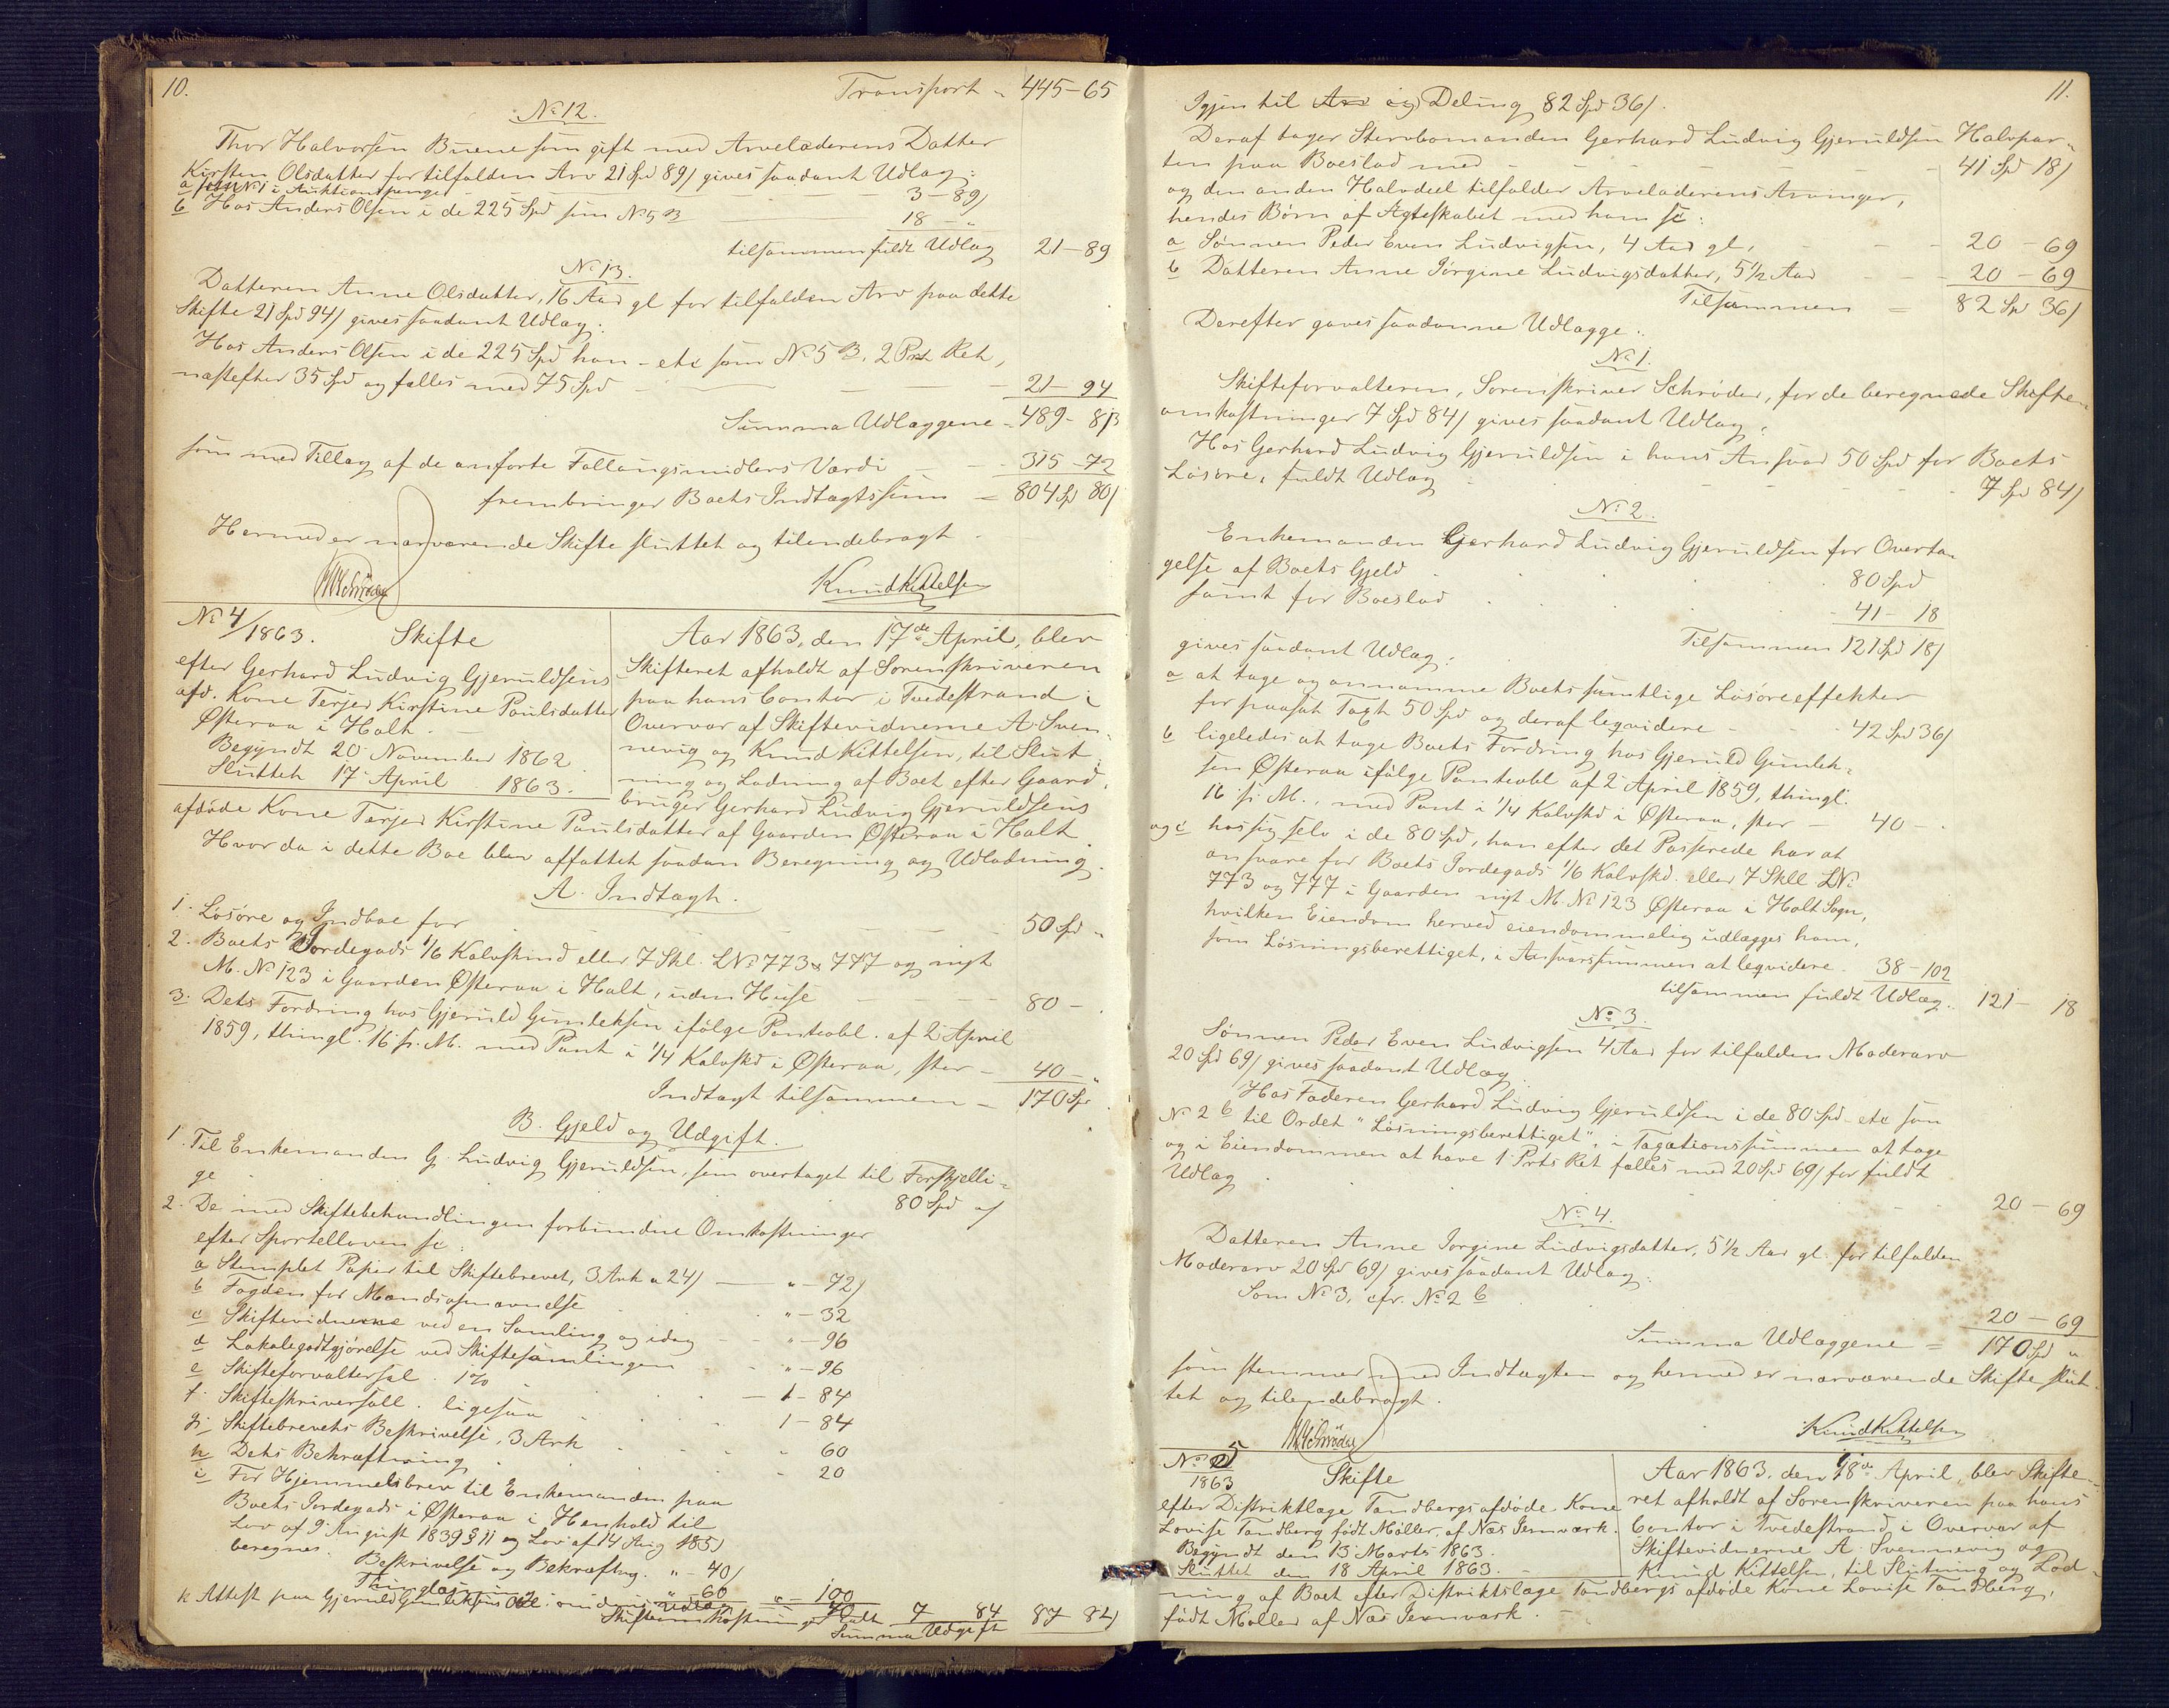 10.
Transport „ 445-65
No 12.
Thor Halvorsen Buene som gift med Arveladerens Datter
Kirsten Olsdatter for tilfalden Arv 21 Spd 89/ gives saadant Udlæg:
a som No 1 i Auktionspenge - - - 3-89/
b Hos Anders Olsen i de 225 Spd som No 5 B - 18 - „
tilsammen fuldt Udlæg 21-89
No 13.
Datteren Anne Olsdatter, 16 Aar gl for tilfalden Arv paa dette
Skifte 21 Spd 94/ gives saadant Udlæg:
Hos Anders Olsen i de 225 Spd han - etc som No 5 B. 2 Prt Ret,
næstefter 35 Spd og fælles med 75 Spd - - - 21-94
Summa Udlæggene - 489-81/3
som med Tillæg af de anførte Faldangsmidlers Værdi - - 315-72
frembringer Boets Indtægtssum = 804 Spd 80/
Hermed er nærværende Skifte sluttet og tilendebragt.
MSchrøder
Knud Kittelsen
No 4/1863. Skifte
efter Gerhard Ludvig Gjeruldsens
afd. Kone Terjer Kirstine Poulsdatter
Østeraa i Holt.
Begyndt 20 November 1862.
Sluttet 17 April 1863.
Aar 1863, den 17de April, blev
Skifteret afholdt af Sorenskriveren
paa hans Contor i Tvedestrand i
Overvær af Skiftevidnerne A. Sven-
nevig og Knud Kittelsen, til Slut-
ning og Lodning af Boet efter Gaard-
bruger Gerhard Ludvig Gjeruldsens
afdøde Kone Terjer Kirstine Poulsdatter af Gaarden Østeraa i Holt.
Hvor da i dette Boe blev affattet saadan Beregning og Udlodning.
A. Indtægt.
1. Løsøre og Indboe for - - - 50 Spd „
2. Boets Jordegods 1/6 Kalvskind eller 7 Skl. L No 773 & 777 og nyt
M. No 123 i Gaarden Østeraa i Holt, uden Huse - - 80 -
3. Dets Fordring hos Gjeruld Gunleksen ifølge Panteobl. af 2 April
1859, thingl. 16 s. M. med Pant i 1/4 Kalvskd i Østeraa, stor - 40 - „
Indtægt tilsammen - 170 Spd
B. Gjeld og Udgift.
1. Til Enkemanden G. Ludvig Gjeruldsen, som overtaget til Forskjelli-
ge - 80 Spd „/
2. De med Skiftebehandlingen forbundne Omkostninger
efter Sportelloven sc:
a Stemplet Papir til Skiftebrevet, 3 Ark a 24/ - „ - 72/
b Fogden for Mændsopnævnelse „ - 32
c Skiftevidnerne ved en Samling og idag - „ - 96
d Lokalegodtgjørelse ved Skiftesamlingen „ - 96
e Skifteforvaltersal. 1% 1 - 84
f. Skifteskriversall. ligesaa 1 - 84
g. Skiftebrevets Beskrivelse, 3 Ark - 60
h Dets Bekræftning - 20
i For Hjemmelsbrev til Enkemanden paa
Boets Jordegods i Østeraa i Henhold til
Lov af 9 August 1839 § 11 og Lov af 14 Aug 1851
beregnes.
Beskrivelse og Bekræftng. „ - 40/
Thinglæsning „ - 60 „ - 100
k Attest paa Gjeruld Gunleksens Obl.
Skifteomkostninger 7 84 87-84/
Summa Udgift
11.
Igjen til Arv og Deling 82 Spd 36/.
Deraf tager Stervbomanden Gerhard Ludvig Gjeruldsen Halvpar-
ten paa Boeslod med - - - 41 Spd 18/
og den anden Halvdeel tilfalder Arveladerens Arvinger,
hendes Børn af Ægteskabet med ham sc:
a Sønnen Peder Even Ludvigsen, 4 Aar gl, - - 20 - 69
b Datteren Anne Jørgine Ludvigsdatter, 5 1/2 Aar - - 20 - 69
Tilsammen = 82 Spd 36/
Derefter gaves saadanne Udlægge:
No 1.
Skifteforvalteren, Sorenskriver Schrøder, for de beregnede Skifte-
omkostninger 7 Spd 84/ gives saadant Udlæg:
Hos Gerhard Ludvig Gjeruldsen i hans Ansvar 50 Spd for Boets
Løsøre, fuldt Udlæg - - - 7 Spd 84/
No 2.
Enkemanden Gerhard Ludvig Gjeruldsen for Overta-
gelse af Boets Gjeld 80 Spd
samt for Boeslod 41 - 18
Tilsammen 121 Spd 18/
gives saadant Udlæg:
a at tage og annamme Boets samtlige Løsøreeffekter
for paasat Taxt 50 Spd og deraf leqvidere - 42 Spd 36/
b ligeledes at tage Boets Fordring hos Gjeruld Gunlek-
sen Østeraa ifølge Panteobl af 2 April 1859, thingl.
16 s. M., med Pant i 1/4 Kalvskd i Østeraa, stor - 40 -
og c hos sig selv i de 80 Spd, han efter det Passerede har at
ansvare for Boets Jordegods 1/6 Kalvskd. eller 7 Skll LNo
773 og 777 i Gaarden nyt M. No 123 Østeraa i Holt Sogn,
hvilken Eiendom herved eiendommelig udlægges ham,
som Løsningsberettiget, i Ansvarssummen at leqvidere. 38-102
tilsammen fuldt Udlæg. 121 - 18
No 3.
Sønnen Peder Even Ludvigsen 4 Aar for tilfalden Moderarv
20 Spd 69/ gives saadant Udlæg
Hos Faderen Gerhard Ludvig Gjeruldsen i de 80 Spd - etc som
No 2 b til Ordet "Løsningsberettiget", i Taxationssummen at tage
og i Eiendommen at have 1 Prts Ret fælles med 20 Spd 69/ for fuldt
Udlæg 20 - 69
No 4.
Datteren Anne Jorgine Ludvigsdatter, 5 1/2 Aar gl. for tilfalden
Moderarv 20 Spd 69/ gives saadant Udlæg:
Som No 3, cfr. No 2 b
20 - 69
Summa Udlæggene = 170 Spd „
som stemmer med Indtægten og hermed er nærværende Skifte slut-
tet og tilendebragt.
MSchrøder
Knud Kittelsen
No 5
1863 Skifte
efter Distriktlæge Tandbergs afdøde Kone
Lovise Tandberg født Møller, af Næs Jernværk.
Begyndt den 13 Marts 1863.
Sluttet den 18 April 1863.
Aar 1863. den 18de April, blev Skifte-
ret afholdt af Sorenskriveren paa hans
Contor i Tvedestrand i Overvær af
Skiftevidnerne A. Svennevig og
Knud Kittelsen, til Slutning og Lod-
ning af Boet efter Distriktslæge Tandbergs afdøde Kone Lovise Tandberg,
født Møller af Næs Jernværk.